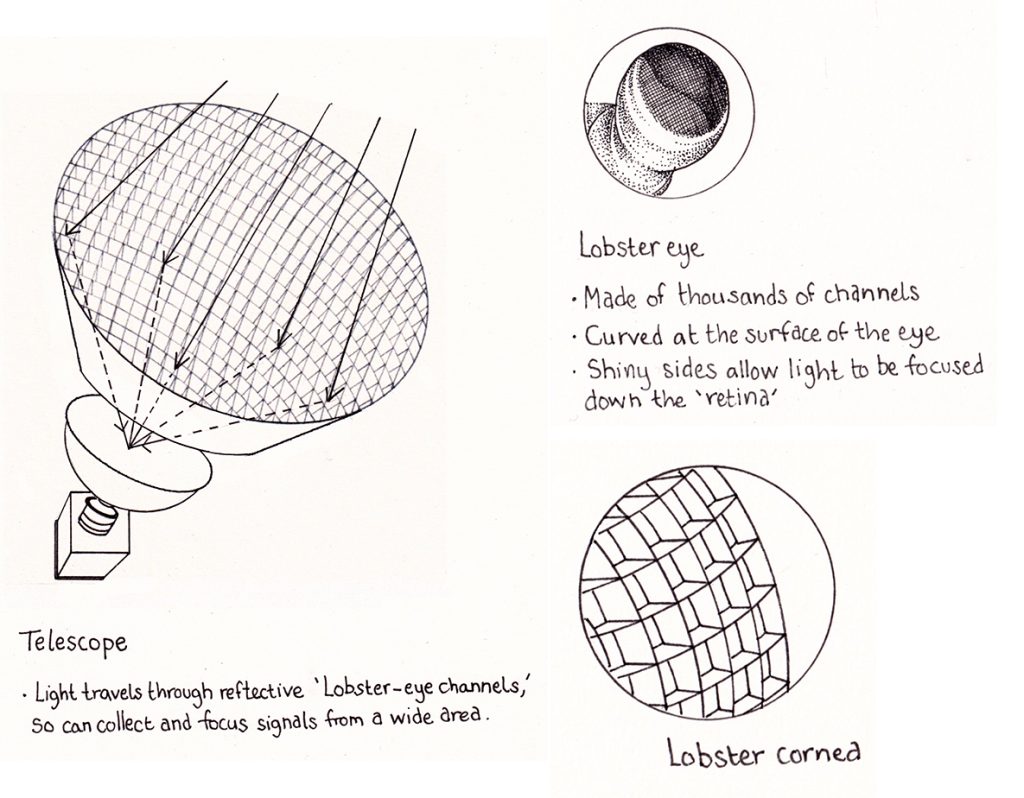 Lobster eye
· Made of thousands of channels
· Curved at the surface of the eye
· Shiny sides allow light to be focused
down the 'retina'
Telescope
· Light travels through reflective 'Lobster-eye channels,'
So can collect and focus signals from a wide area.
Lobster cornea